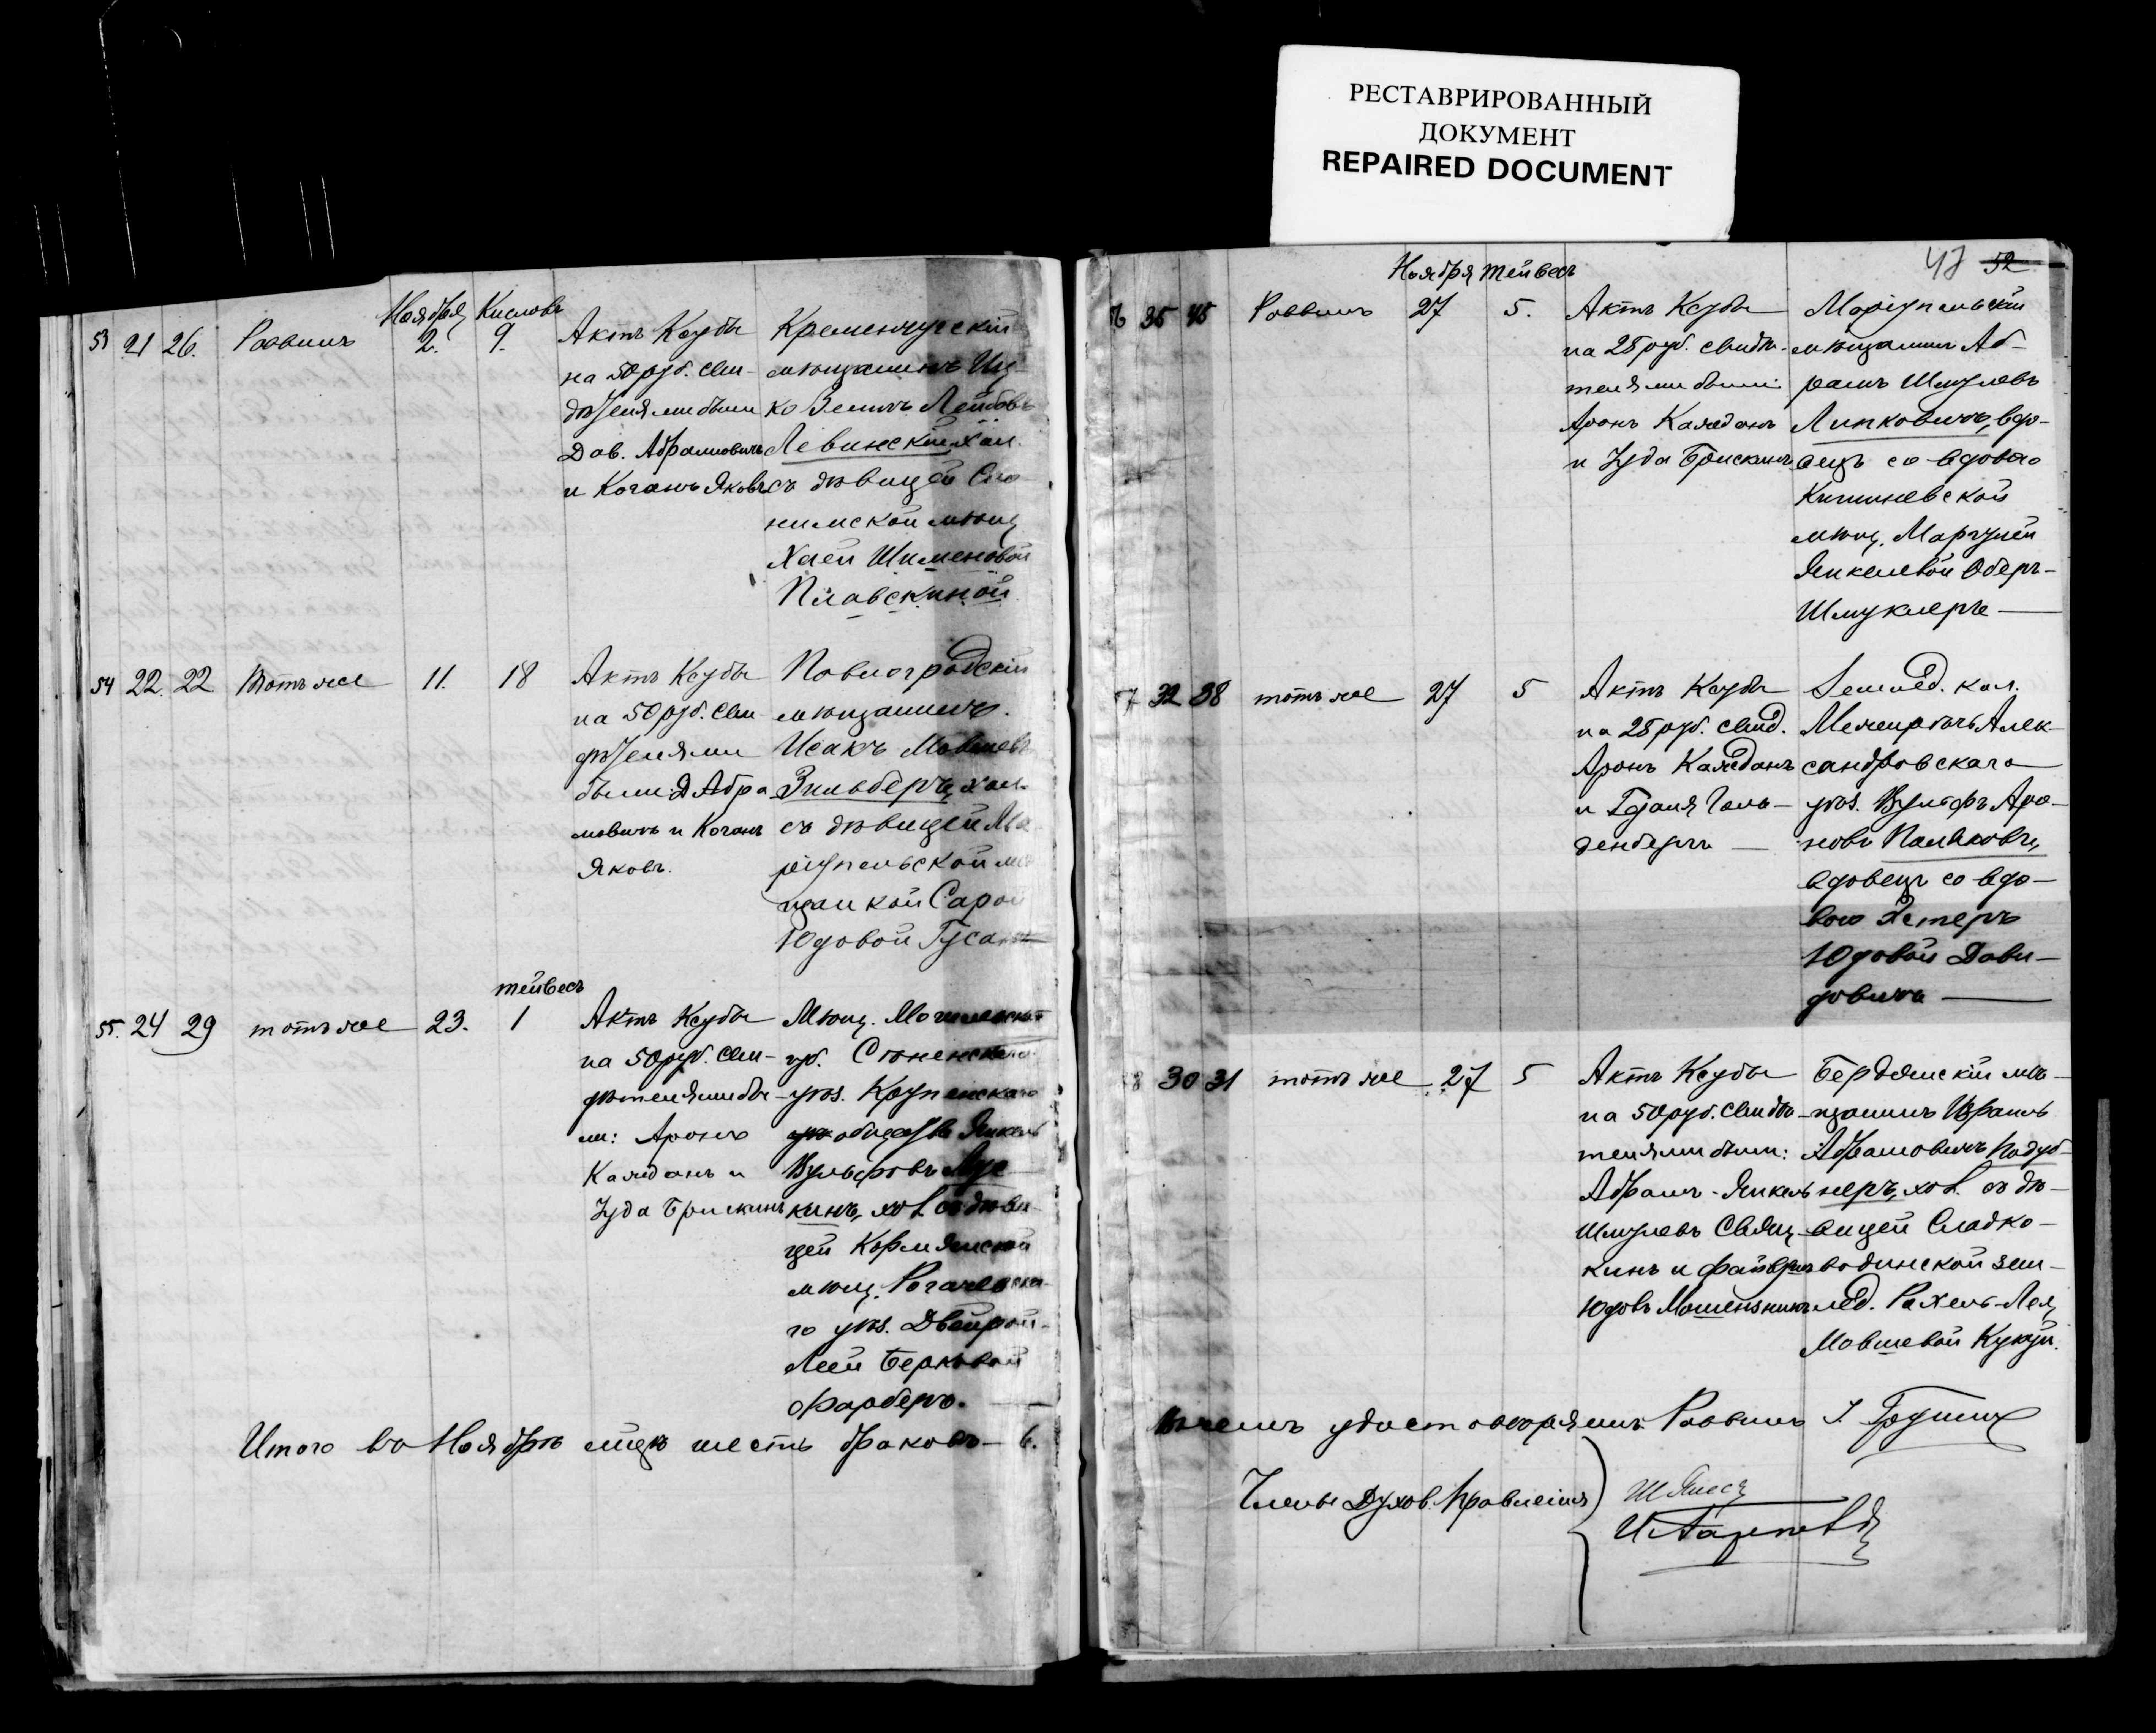 РЕСТАВРИРОВАННЫЙ
ДОКУМЕНТ
REPAIRED DOCUMENT
Ноября Кислевъ
53 21 26. Раввинъ 2. 9.
Актъ Ксубы
на 50 руб. Сви-
дѣтелями были
Дав. Абрамовичъ
и Коганъ Яковъ
Кременчугскій
мѣщанинъ Иц-
ко Зеликъ Лейбовъ
Левинскій, хол.
съ дѣвицей Сло-
нимской мѣщ.
Хаей Шименовой
Плавскиной
54 22. 22 Тотъ же 11. 18
Актъ Ксубы
на 50 руб. Сви-
дѣтелями
были: Д. Абра
мовичъ и Коганъ
Яковъ.
Павлоградскій
мѣщанинъ
Исакъ Мовшевъ
Зильбергъ, хол.
съ дѣвицей Ма
ріупольской мѣ
щанкой Сарой
Юдовой Гусакъ
тейвесъ
55. 24 29 тотъ же 23. 1
Актъ Ксубы
на 50 руб. Сви-
дѣтелями бы-
ли: Аронъ
Каждонъ и
Іуда Брискинъ
Мѣщ. Могилевской
губ. Сѣненскаго
уѣз. Крупенскаго
общества Янкель
Вульфовъ
кинъ, хол. съ дѣви-
цей Кормянской
мѣщ. Рогачевска-
го уѣз. Двейрой-
Леей Берковой
Фарберъ.
Итого въ Ноябрѣ мѣцѣ шесть браковъ — 6.
47 52
Ноября тейвесъ
56 35 45 Раввинъ 27 5.
Актъ Ксубы
на 25 руб. свидѣ-
телями были:
Аронъ Каждонъ
и Іуда Брискинъ
Маріупольскій
мѣщанинъ Аб-
рамъ Шмулевъ
Липковичъ, вдо-
вецъ со вдовою
Кишиневской
мѣщ. Маргулей
Янкелевой Оберъ-
Шмуклеръ
57 32 38 тотъ же 27 5
Актъ Ксубы
на 25 руб. свид.
Аронъ Каждонъ
и Гдалія Голь-
денбергъ
Землед. кол.
Межиричъ Алек-
сандровскаго
уѣз. Вульфъ Аро-
новъ Поляковъ,
вдовецъ со вдо-
вою Эстеръ
Юдовой Дави-
довичъ
58 30 31 тотъ же 27 5
Актъ Ксубы
на 50 руб. Свидѣ-
телями были:
Абрамъ-Янкель
Шмулевъ Сви
кинъ и Файвишъ
Юдовъ
Бердянскій мѣ-
щанинъ Израиль
Абрамовичъ Подуб-
неръ, хол. съ дѣ-
вицей Сладко-
водинской зем-
лед. Рахель-Лея
Мовшевой Кукуй.
Въ чемъ удостовѣряемъ: Раввинъ
Члены Духов. Правленія